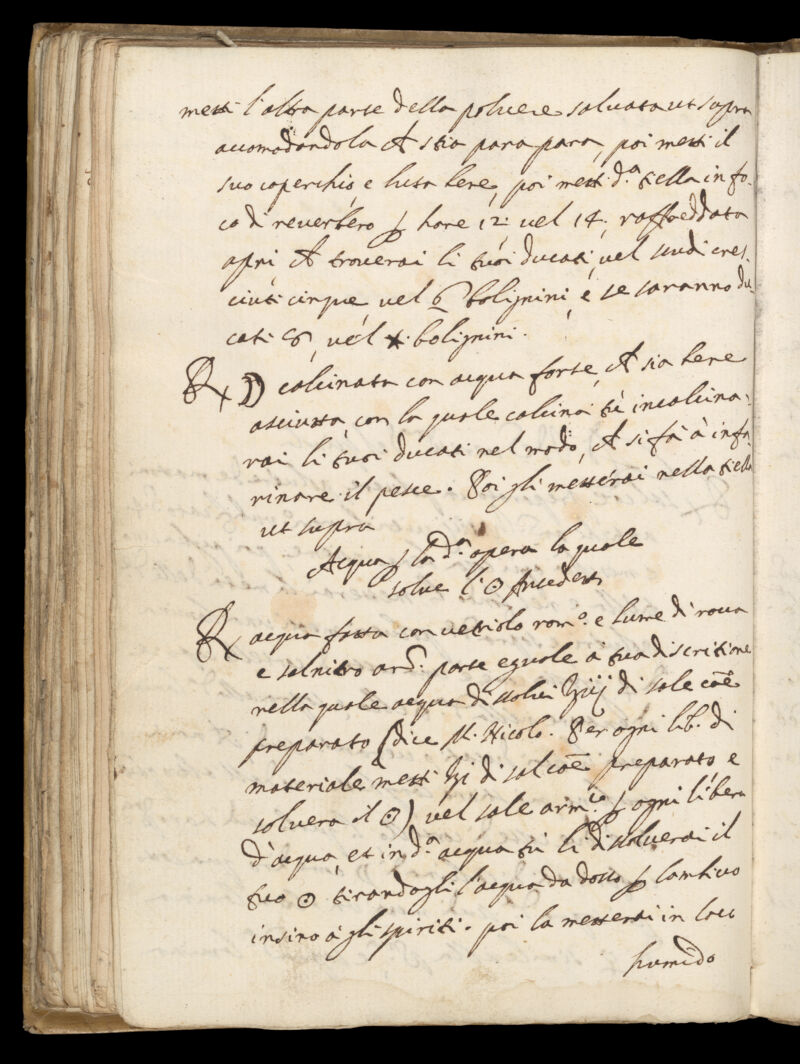 metti l'altra parte della polvere salvata ut supra
accomodandola che stia para para, poi metti il
suo coperchio, e luta bene, poi metti d.ª tiella in fo-
co di reverbero ꝑ hore 12: vel 14, raffreddata
apri che troverai li tuoi ducati, vel scudi cres-
ciuti cinque vel 6 bolignini, e se saranno du-
cati 8, vel X bolignini.
℞ ☽ calcinata con acqua forte, che sia bene
asciutta, con la quale calcina tù incalcina-
rai li tuoi ducati nel modo, che si fà à infa-
rinare il pesce. Poi gli metterai nella tiella
ut supra
Acqua ꝑ la d.ª opera la quale
solve l'☉
℞ acqua fatta con vetriolo rom.º e lume di roca
e salnitro an.ª parte eguale à tua discritione
nella quale acqua dissolvi ℥iiij di sale coe
preparato (dice M. Nicolo. Per ogni lib. di
materiale metti ℥i di sal coe preparato e
solvera il ☉) vel sale arm.co ꝑ ogni libera
d'acqua, et in d.ª acqua tù li dissolverai il
tuo ☉ tirandogli l'acqua da dosso ꝑ lambico
insino à gli spiriti. poi la metterai in loco
humido